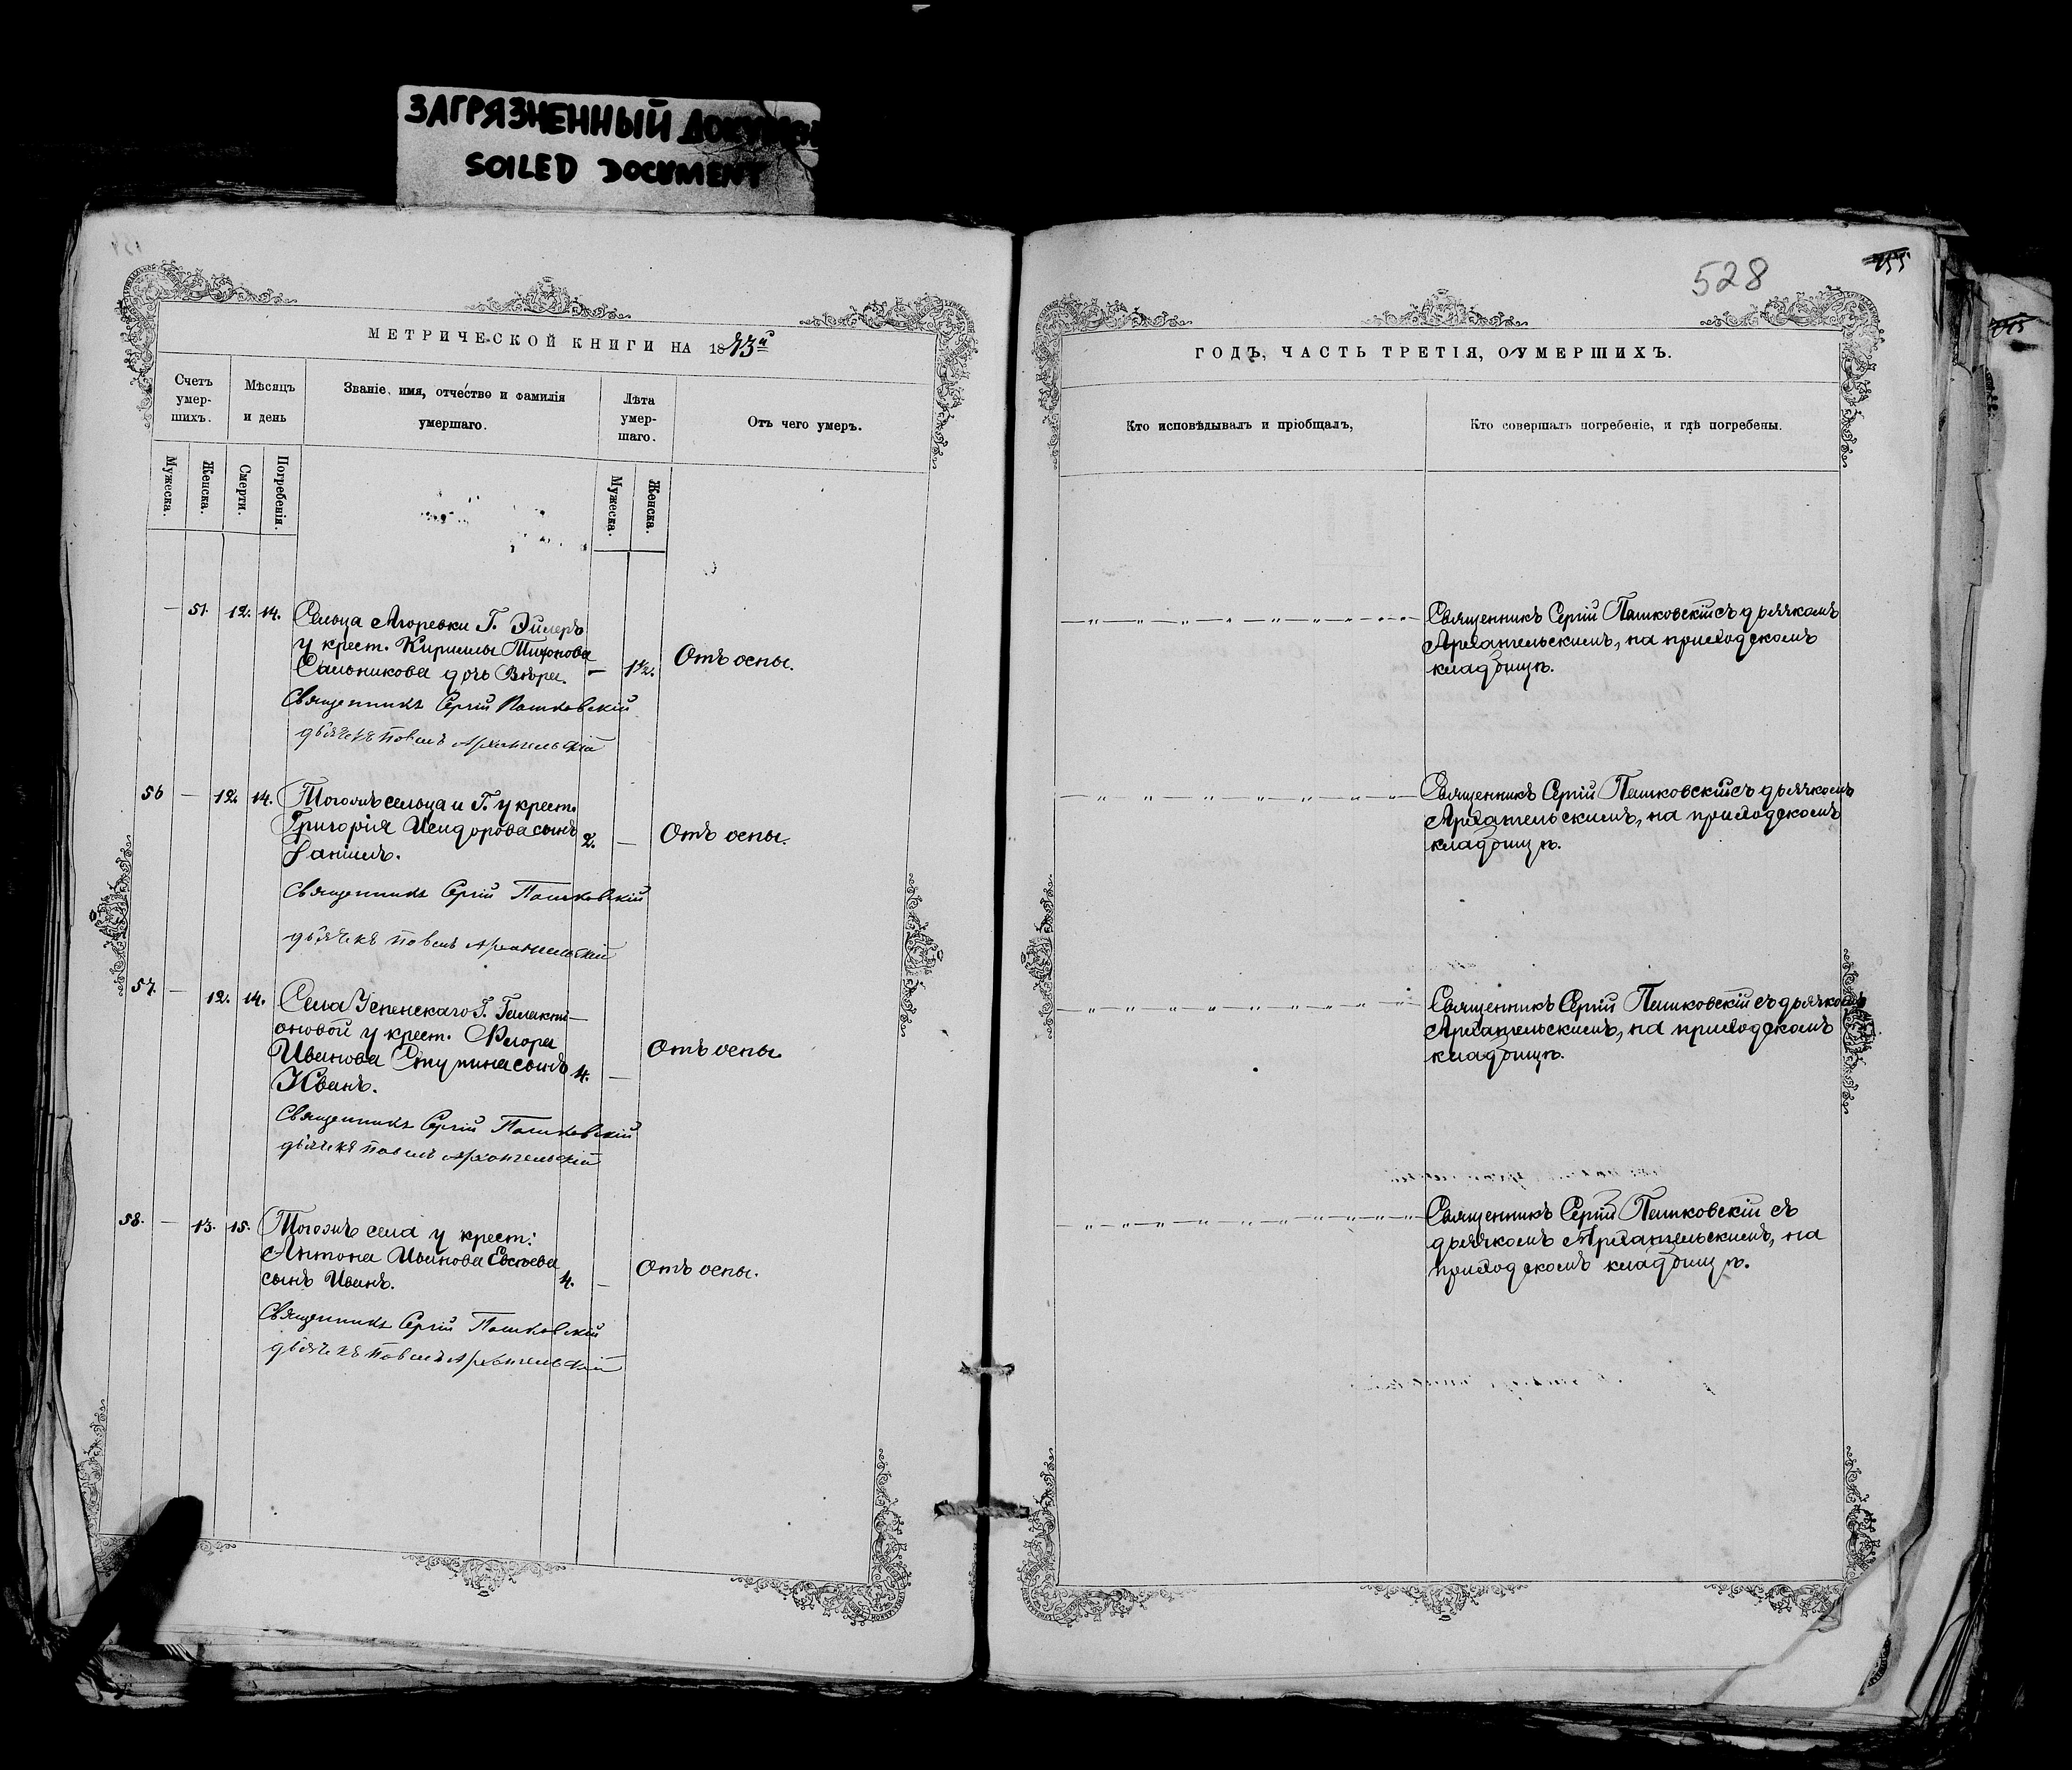 ЗАГРЯЗНЕННЫЙ ДОКУМЕ
SOILED DOCUMENT
МЕТРИЧЕСКОЙ КНИГИ НА 1873й
Счетъ умер-шихъ.
Мѣсяцъ и день
Званіе, имя, отчество и фамилія умершаго.
Лѣта умер-шаго.
Отъ чего умеръ.
Мужеска.
Женска.
Смерти.
Погребенія.
Мужеска.
Женска.
— 51. 12. 14. Сельца Агоревки Г. Эйлеръ
у крест. Кириллы Тихонова
Сальникова дочь Вѣра. — 1½. Отъ оспы.
Священникъ Сергій Пашковскій
дьячекъ Павелъ Архангельскій
56 — 12. 14. Тогожъ сельца и Г. у крест.
Григорія Исидорова сынъ 2. — Отъ оспы.
Даніилъ.
Священникъ Сергій Пашковскій
дьячекъ Павелъ Архангельскій
57. — 12. 14. Села Успенскаго Г. Галакті-
оновой у крест. Егора
Иванова Ступина сынъ 4. — Отъ оспы.
Иванъ.
Священникъ Сергій Пашковскій
дьячекъ Павелъ Архангельскій
58. — 13. 15. Тогожъ села у крест:
Антона Иванова Евсѣева
сынъ Иванъ. 4. — Отъ оспы.
Священникъ Сергій Пашковскій
дьячекъ Павелъ Архангельскій
528
155
ГОДЪ, ЧАСТЬ ТРЕТІЯ, О УМЕРШИХЪ.
Кто исповѣдывалъ и пріобщалъ,
Кто совершалъ погребеніе, и гдѣ погребены.
Священникъ Сергій Пашковскій съ дьячкомъ
Архангельскимъ, на приходскомъ
кладбищѣ.
Священникъ Сергій Пашковскій съ дьячкомъ
Архангельскимъ, на приходскомъ
кладбищѣ.
Священникъ Сергій Пашковскій съ дьячкомъ
Архангельскимъ, на приходскомъ
кладбищѣ.
Священникъ Сергій Пашковскій съ
дьячкомъ Архангельскимъ, на
приходскомъ кладбищѣ.